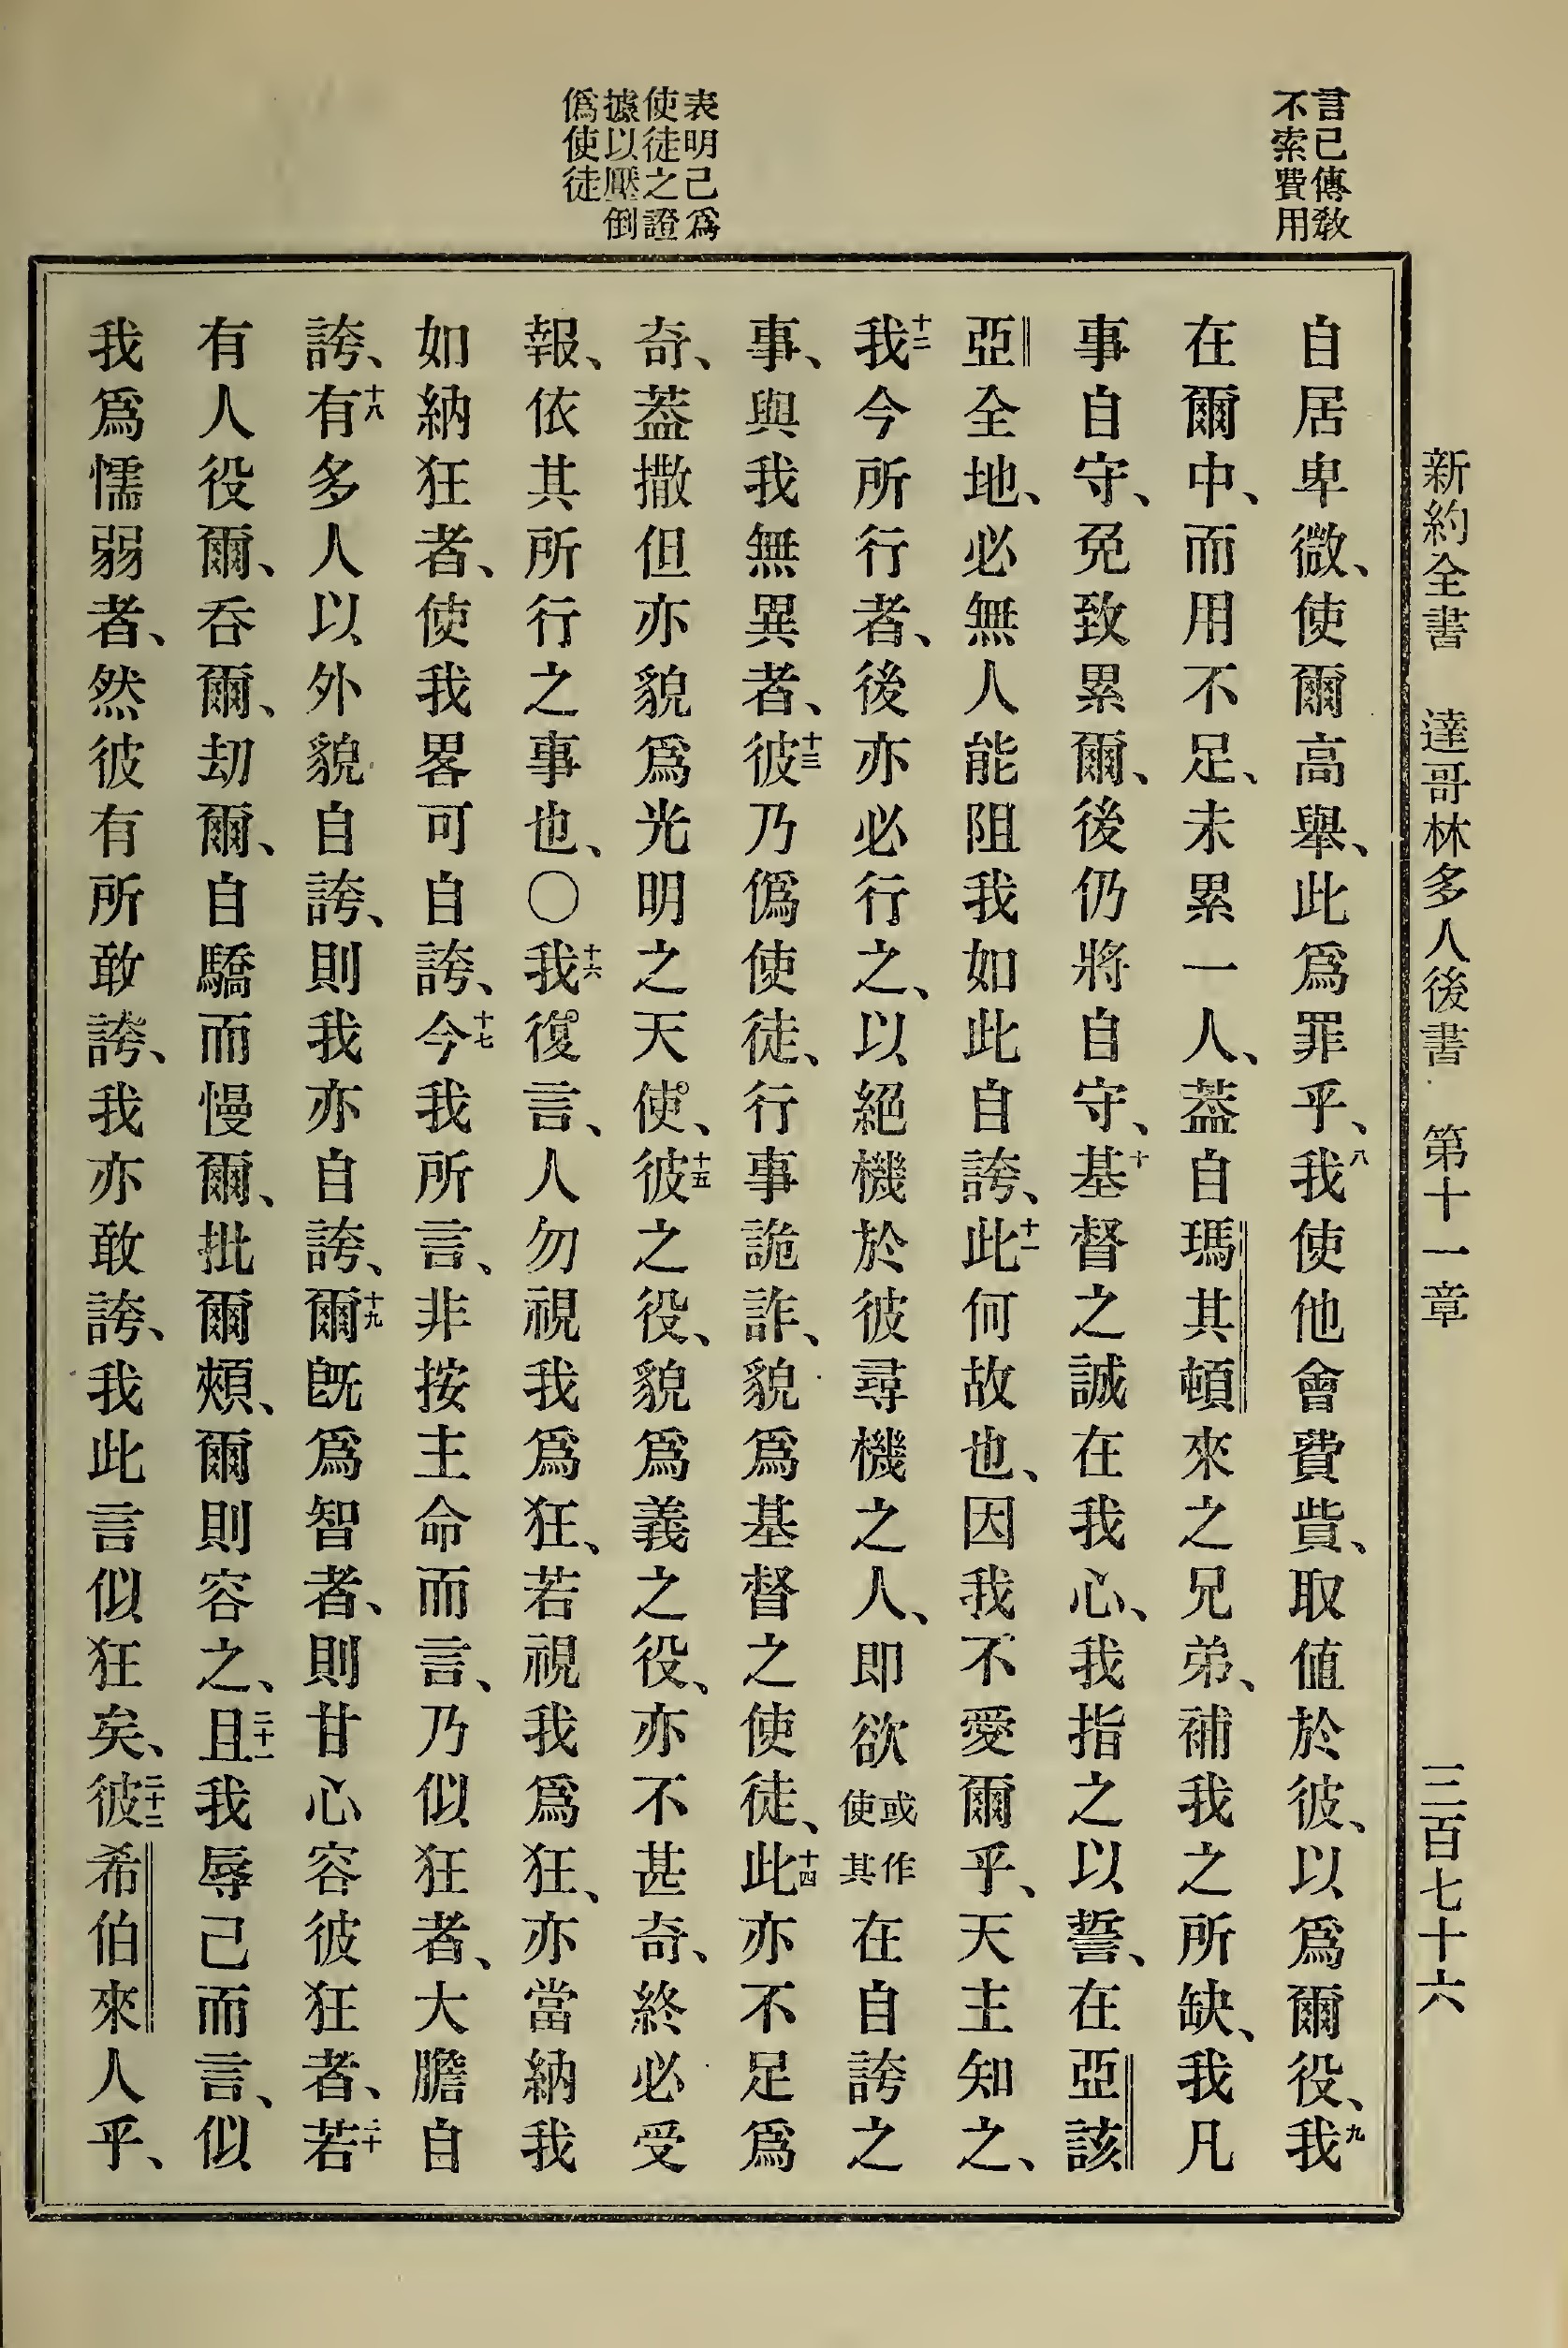 新約全書 達哥林多人後書 第十一章 三百七十六
言己傳教
不索費用
表明己爲
使徒之證
據以壓倒
僞使徒
自居卑微、使爾高舉、此爲罪乎、八我使他會費貲、取值於彼、以爲爾役、九我
在爾中、而用不足、未累一人、蓋自瑪其頓來之兄弟、補我之所缺、我凡
事自守、免致累爾、後仍將自守、十基督之誠在我心、我指之以誓、在亞該
亞全地、必無人能阻我如此自誇、十一此何故也、因我不愛爾乎、天主知之、
十二我今所行者、後亦必行之、以絕機於彼尋機之人、即欲或作使其在自誇之
事、與我無異者、十三彼乃僞使徒、行事詭詐、貌爲基督之使徒、十四此亦不足爲
奇、蓋撒但亦貌爲光明之天使、十五彼之役、貌爲義之役、亦不甚奇、終必受
報、依其所行之事也、〇十六我復言、人勿視我爲狂、若視我爲狂、亦當納我
如納狂者、使我畧可自誇、十七今我所言、非按主命而言、乃似狂者、大膽自
誇、十八有多人以外貌自誇、則我亦自誇、十九爾旣爲智者、則甘心容彼狂者、二十若
有人役爾、吞爾、刧爾、自驕而慢爾、批爾頰、爾則容之、二十一且我辱己而言、似
我爲懦弱者、然彼有所敢誇、我亦敢誇、我此言似狂矣、二十二彼希伯來人乎、